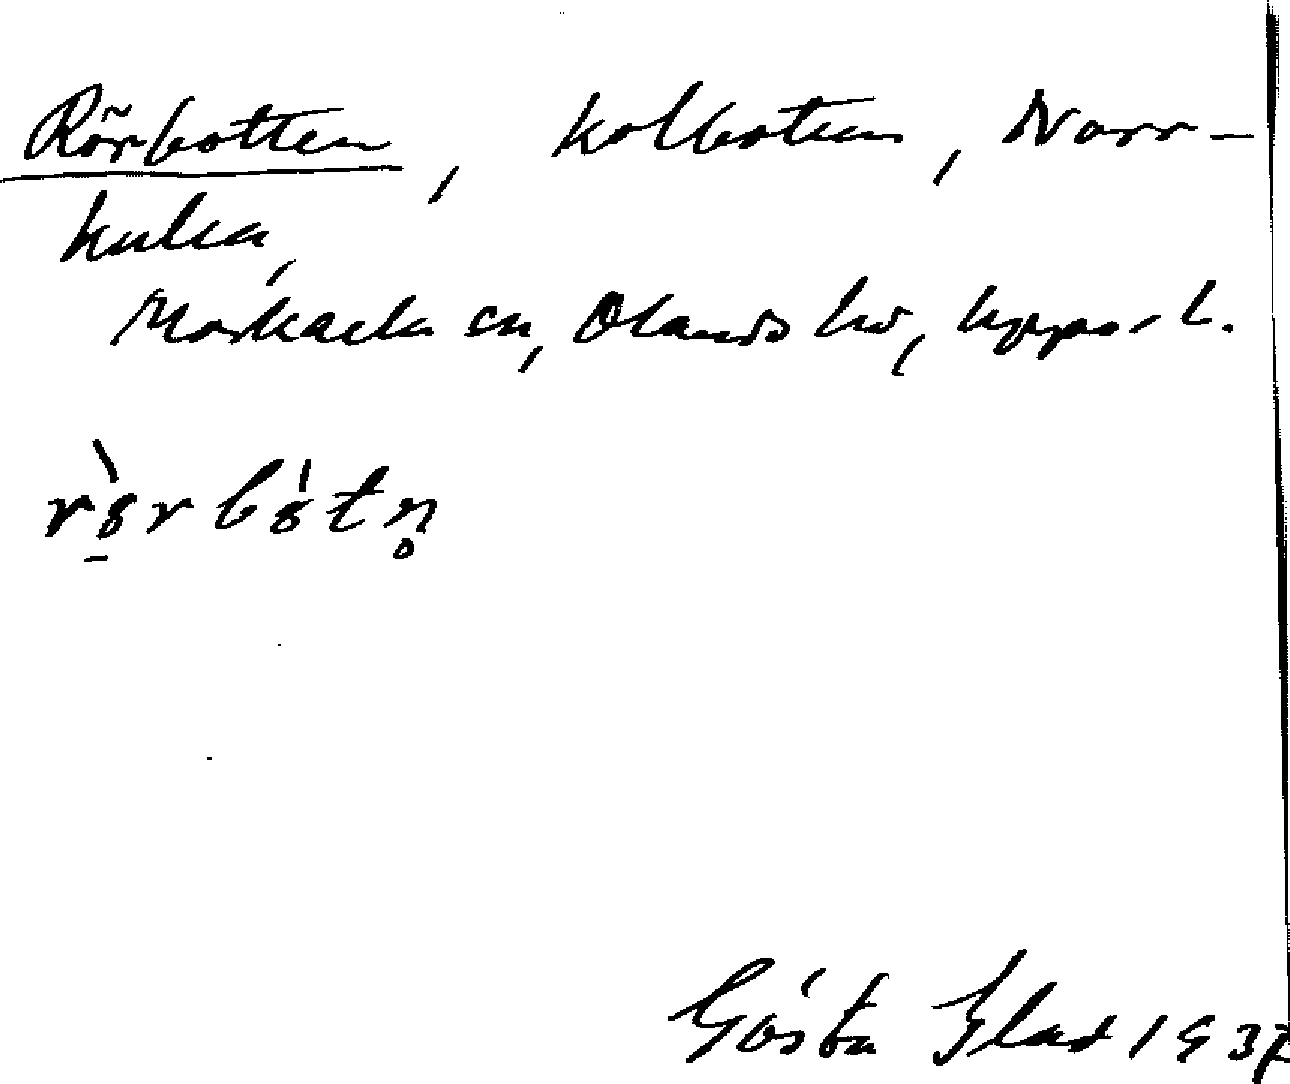 Rörbotten, kolbotten, Norr-
kulla,
Morkarla sn, Olands hd, Upps. l.
Gösta Blad 1937